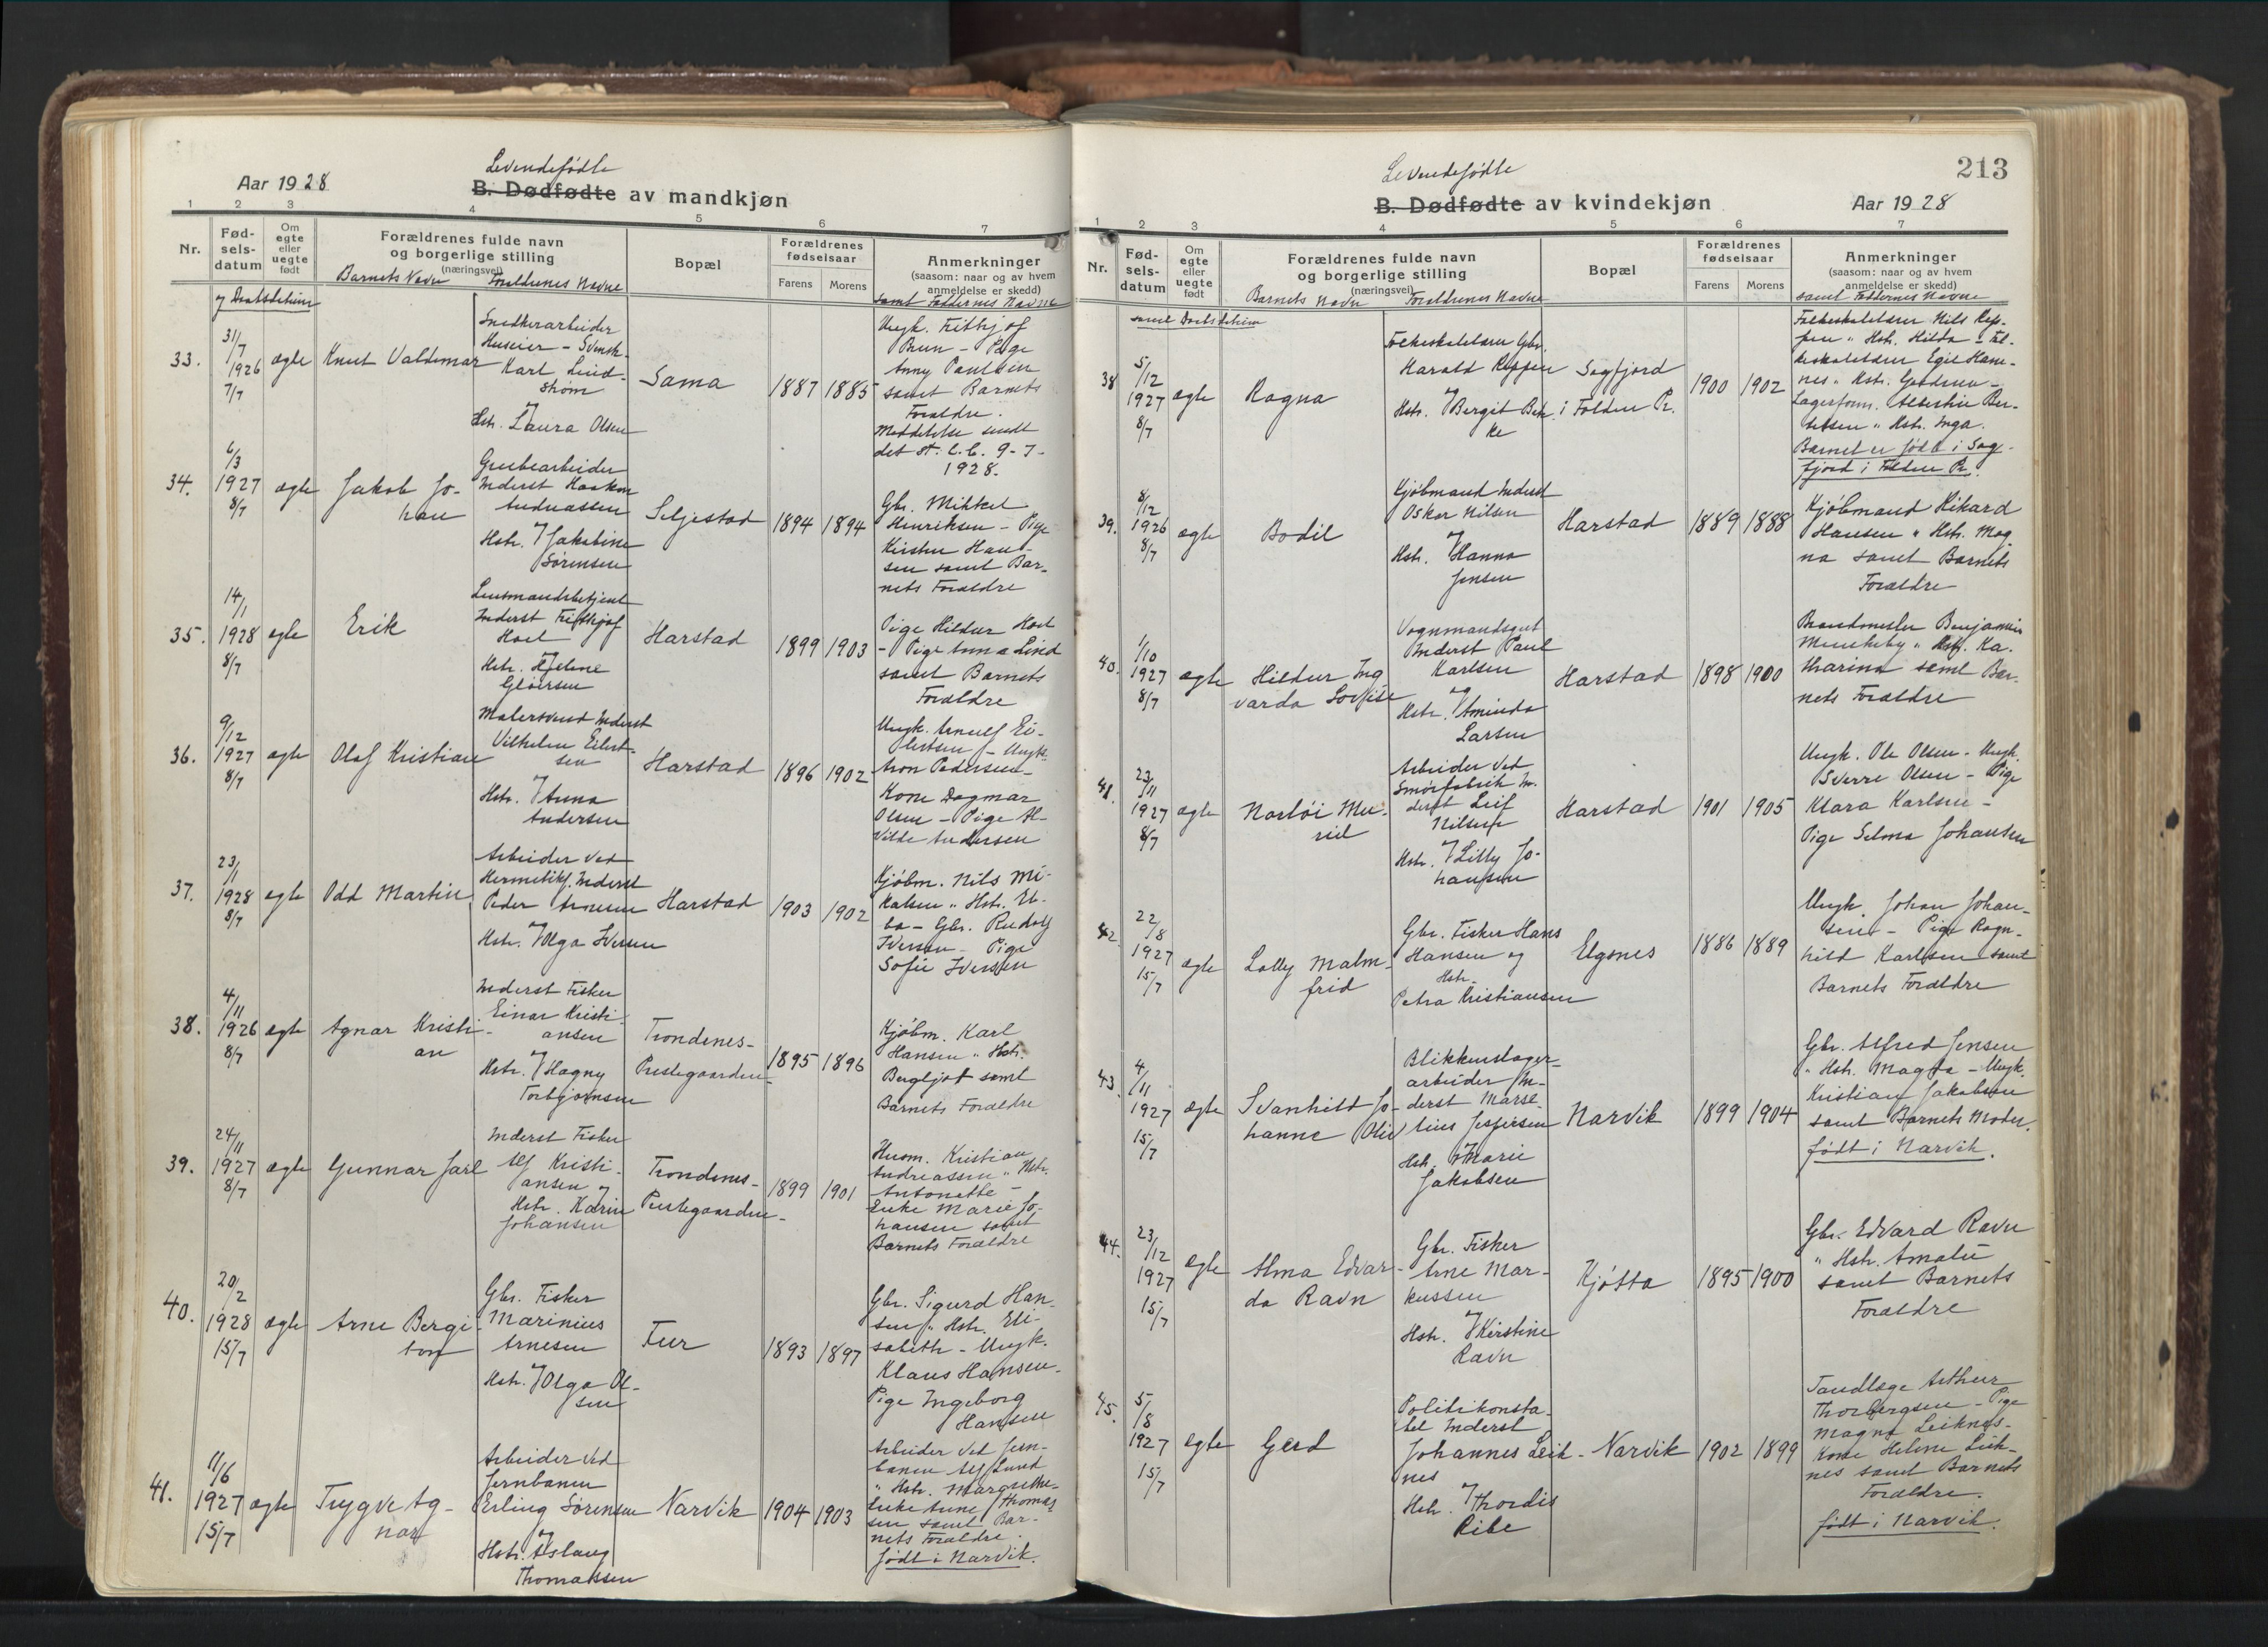 Levendefødte
Aar 1928
B. Dødfødte av mandkjøn
1 2 3 4 5 6 7
Nr.
Fød-
sels-
datum
Om
egte
eller
uegte
født
Forældrenes fulde navn
og borgerlige stilling
(næringsvei)
Barnets Navn Forældrenes Navne
Bopæl
Forældrenes
fødselsaar
Farens Morens
Anmerkninger
(saasom: naar og av hvem
anmeldelse er skedd)
samt Faddernes Navne
og Daabsdatum
33.
31/7
1926
7/7
ægte
Knut Valdemar
Snedkerarbeider
Huseier - Svensk
Karl Lind-
strøm
og
Hstr. Laura Olsen
Sama
1887 1885
Ungk. Fithjof
Brun - Pige
Anny Paulsen
samt Barnets
Forældre.
Meddelelse sendt
det st. C. B. 9-7-
1928.
34.
6/3
1927
8/7
ægte
Jakob Jo-
han
Grubearbeider
Inderst Haakon
Andreassen
og
Hstr. Jakobine
Sørensen
Seljestad
1894 1894
Gbr. Mikkel
Henriksen - Pige
Kirsten Han-
sen samt Bar-
nets Forældre
35.
14/1
1928
8/7
ægte
Erik
Lensmandsbetjent
Inderst Fritthjof
Hoel
og
Hstr. Helene
Gløersen
Harstad
1899 1903
Pige Hildur Hoel
- Pige Anna Lind
samt Barnets
Forældre
36.
9/12
1927
8/7
ægte
Olaf Kristian
Malersvend Inderst
Vilhelm Eilert-
sen
og
Hstr. Anna
Andersen
Harstad
1896 1902
Ungk. Arnulf Ei-
lertsen - Ungk.
Aron Pedersen -
Kone Dagmar
Olsen - Pige Al-
vilde Andersen
37.
23/1
1928
8/7
ægte
Odd Martin
Arbeider ved
Hermetikf. Inderst
Peder Arnesen
og
Hstr. Olga Iversen
Harstad
1903 1902
Kjøbm. Nils Mi-
kalsen " Hstr. Eb-
ba - Gbr. Rudolf
Iversen - Pige
Sofie Iversen
38.
4/11
1926
8/7
ægte
Agnar Kristi-
an
Inderst Fisker
Einar Kristi-
ansen
og
Hstr. Hagny
Torbjørnsen
Trondenes-
Prestegaarden
1895 1896
Kjøbm. Karl
Hansen " Hstr.
Bergljot samt
Barnets Forældre
39.
24/11
1927
8/7
ægte
Gunnar Jarl
Inderst Fisker
Alf Kristi-
ansen og
Hstr. Karin
Johansen
Trondenes-
Prestegaarden
1899 1901
Husm. Kristian
Andreassen " Hstr.
Antonette -
Enke Marie Jo-
hansen samt
Barnets Forældre
40.
20/2
1928
15/7
ægte
Arne Bergi-
ton
Gbr. Fisker
Marinius
Arnesen
og
Hstr. Olga Ol-
sen
Fur
1893 1897
Gbr. Sigurd Han-
sen " Hstr. Eli-
sabeth - Ungk.
Klaus Hansen -
Pige Ingeborg
Hansen
41.
11/6
1927
15/7
ægte
Trygve Ag-
nar
Arbeider ved
Jernbanen
Erling Sørensen
og
Hstr. Aslaug
Thomassen
Narvik
1904 1903
Arbeider ved Jern-
banen Alf Lund
" Hstr. Margrethe -
Enke Anne Thomas
sen samt Bar-
nets Forældre.
født i Narvik.
213
Levendefødte
B. Dødfødte av kvindekjøn
Aar 1928
1 2 3 4 5 6 7
Nr.
Fød-
sels-
datum
Om
egte
eller
uegte
født
Forældrenes fulde navn
og borgerlige stilling
(næringsvei)
Barnets Navn Forældrenes Navne
Bopæl
Forældrenes
fødselsaar
Farens Morens
Anmerkninger
(saasom: naar og av hvem
anmeldelse er skedd)
samt Faddernes Navne
samt Daabsdatum
38
5/12
1927
8/7
ægte
Ragna
Folkeskolelærer Gbr.
Harald Reppen
og
Hstr. Bergit Bek-
ke
Sagfjord
i Folden Pr.
1900 1902
Folkeskolelærer Nils Rep-
pen " Hstr. Hilda - Fol-
keskolelærer Egil Hane-
nes " Hstr. Gudrun -
Lagerform. Albertin Ber-
telsen " Hstr. Inga.
Barnet er født i Sag-
fjord i Folden Pr.
39.
8/12
1926
8/7
ægte
Bodil
Kjøbmand Inderst
Oskar Nilsen
og
Hstr. Hanna
Jensen
Harstad
1889 1888
Kjøbmand Rikard
Hansen " Hstr. Mag
na samt Barnets
Forældre
40.
1/10
1927
8/7
ægte
Hildur Ing
varda Lovise
Vognmandsgut
Inderst Paul
Karlsen
og
Hstr. Aminda
Larsen
Harstad
1898 1900
Brandmester Benjamin
Munkeby " Hstr. Ka-
tharina samt Bar-
nets Forældre
41.
23/11
1927
8/7
ægte
Norløi Mu-
riel
Arbeider ved
Smørfabrik In-
derst Leif
Nilsen
og
Hstr. Lilly Jo-
hansen
Harstad
1901 1905
Ungk. Ole Olsen - Ungk.
Sverre Olsen - Pige
Klara Karlsen -
Pige Selma Johansen
42.
22/8
1927
15/7
ægte
Lolly Malm-
frid
Gbr. Fisker Hans
Hansen og
Hstr.
Petra Kristiansen
Elgsnes
1886 1889
Ungk. Johan Johan-
sen - Pige Ragn-
hild Karlsen samt
Barnets Forældre
43.
4/11
1927
15/7
ægte
Svanhild Jo-
hanne Oliv
Blikkenslager-
arbeider In-
derst Marse-
lius Jespersen
og
Hstr. Marie
Jakobsen
Narvik
1899 1904
Gbr. Alfred Jensen
" Hstr. Magda - Ungk.
Kristian Jakobsen
samt Barnets Moder.
født i Narvik.
44.
23/12
1927
15/7
ægte
Alma Edvar-
da Ravn
Gbr. Fisker
Arne Mar-
kussen
og
Hstr. Kirstine
Ravn
Kjøtta
1895 1900
Gbr. Edvard Ravn
" Hstr. Amalie
samt Barnets
Forældre
45.
5/8
1927
15/7
ægte
Gerd
Politikonsta-
bel Inderst
Johannes Leik-
nes
og
Hstr. Thordis
Ribe
Narvik
1902 1899
Tandlæge Arthur
Thorbergsen - Pige
Magna Leiknes -
Kone Helene Leik-
nes samt Barnets
Forældre.
født i Narvik.